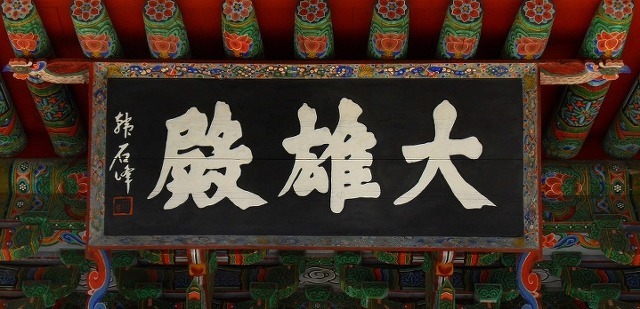 大雄殿
韓石峰